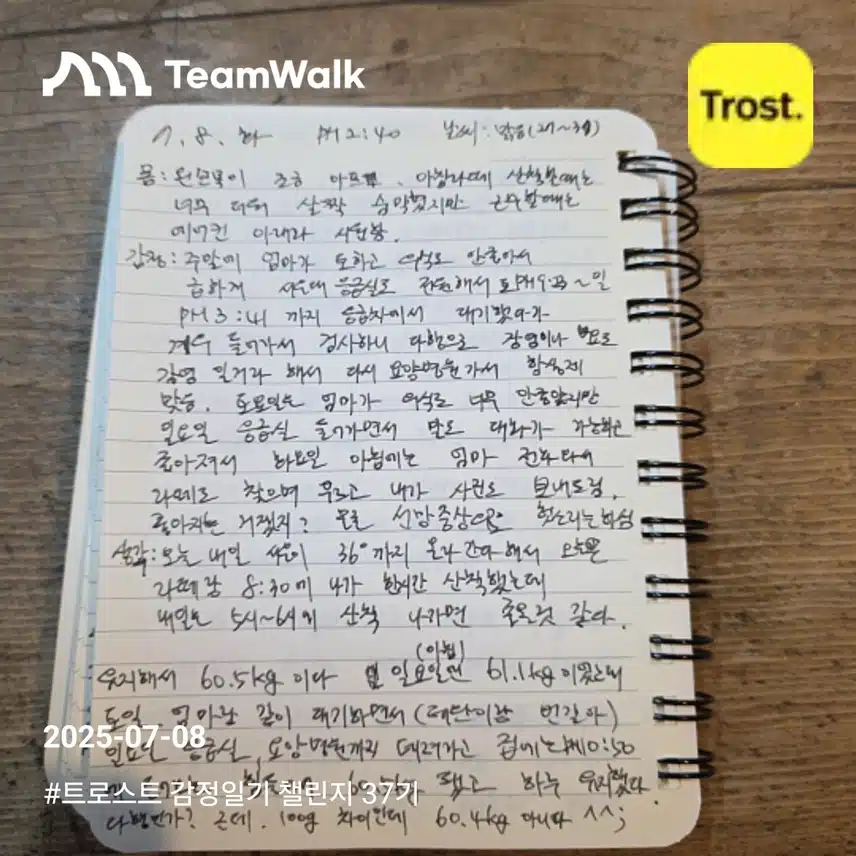 TeamWalk
Trost.
7. 8. 화 PM 2:40 날씨: 맑음(27~36)
몸: 왼손목이 조금 아프다. 아침라떼 산책할때는
너무 더워 살짝 숨막혔지만 근무할때는
에어컨 아래라 시원함.
감정: 주말에 엄마가 토하고 의식도 안좋아서
급하게 서울대 응급실로 전원해서 토PM 9:23 ~ 일
PM 3:41 까지 응급차에서 대기했다가
겨우 들어가서 검사하니 다행으로 장염이나 요로
감염 일거라 해서 다시 요양병원 가서 항생제
맞음. 토요일은 엄마가 의식도 너무 안좋았지만
일요일 응급실 들어가면서 말로 대화가 가능하고
좋아져서 화요일 아침에는 엄마 전화와서
라떼도 찾으며 우려고 내가 사진도 보내드림.
좋아지는 거겠지? 물론 섬망증상으로 헛소리는 하심
생각: 오늘 내일 서울이 36°까지 올라간다 해서 오늘은
라떼랑 8:30에 나가 한시간 산책했는데
내일은 5시~6시에 산책 나가면 좋을것 같다.
(아침)
유지해서 60.5kg 이다 일요일엔 61.1kg이었는데
토일 엄마랑 같이 대기하면서 (대단이랑 번갈아)
일요일 응급실, 요양병원까지 데려가고 집에는 PM 10:50
60.5kg 됐고 하루 유지했다.
다행인가? 근데. 100g 차이인데 60.4kg 아니다 ^^;
2025-07-08
#트로스트 감정일기 챌린지 37기